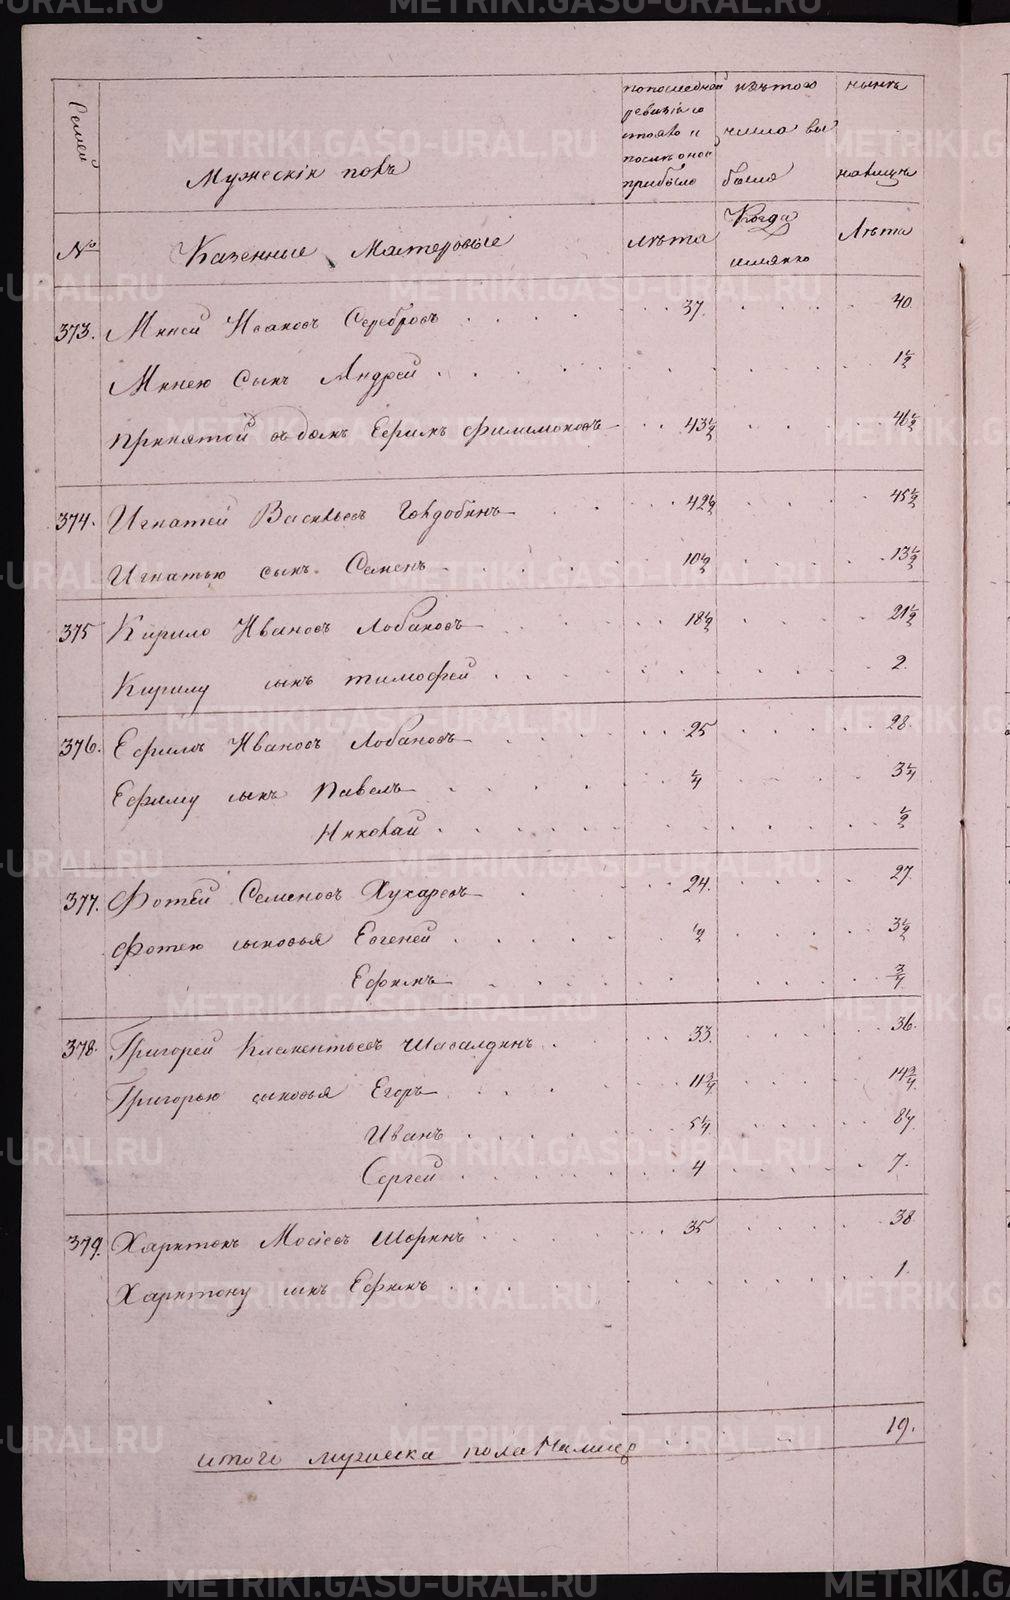 METRIKI.GASO-URAL.RU
Семей
Мужескiй полъ
по последней ревизiи состояло и после оной прибыло
изъ того числа выбыло
ныне на лицо
№
Казенные Мастеровые
Лѣта
Когда именно
Лѣта
373. Миней Ивановъ Серебровъ 37. 40.
Минею сынъ Андрей 1 1/2
Принятой въ домъ Ефимъ Филимоновъ 43 1/2 46 1/2
374. Игнатей Васильевъ Голдобинъ 42 1/2 45 1/2
Игнатью сынъ Семенъ 10 1/2 13 1/2
375 Кирило Ивановъ Лобановъ 18 1/2 21 1/2
Кирилу сынъ Тимофей 2.
376. Ефимъ Ивановъ Лобановъ 25 28.
Ефиму сынъ Павелъ 1/4 3 1/4
Николай 1/2
377. Фотей Семеновъ Кухаревъ 24. 27
Фотею сыновья Евгеней 1/2 3 1/2
Ефимъ 3/4
378. Григорей Климентьевъ Шабалдинъ 33. 36.
Григорью сыновья Егоръ 11 3/4 14 3/4
Иванъ 5 1/4 8 1/4
Сергей 4 7.
379. Харитонъ Мосiевъ Шоринъ 35 38
Харитону сынъ Ефимъ 1.
итого мужеска пола налицо 19.